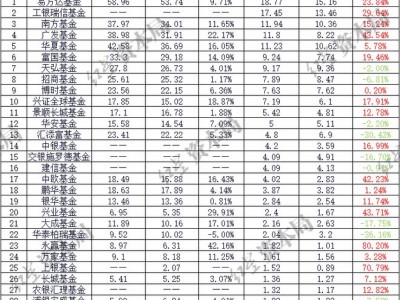 1 易方达基金 58.96 53.74 9.71% 18.77 15.16 23.84%
2 工银瑞信基金 —— —— —— 17.46 13.46 29.64%
3 南方基金 37.97 34.01 11.65% 11.94 10.36 15.24%
4 广发基金 38.91 31.91 22.17% 11.8 8.22 43.54%
5 华夏基金 42.58 36.69 16.05% 11.23 10.62 5.78%
6 富国基金 33.3 29.18 14.09% 9.24 7.74 19.46%
7 天弘基金 27.8 26.73 4.01% 9.17 9.36 -2.00%
8 招商基金 25.61 25.32 1.17% 7.89 8.47 -6.81%
9 博时基金 23.56 22.15 6.36% 7.63 7.62 0.20%
10 兴证全球基金 17.85 15.02 18.87% 7.19 6.1 17.91%
11 景顺长城基金 17.1 16.78 1.88% 5.42 4.81 12.78%
12 华安基金 15.58 14.54 7.09% 5 5.11 -2.00%
13 汇添富基金 23.41 22.22 5.33% 4.8 6.9 -30.43%
14 中银基金 —— —— —— 4.2 3.59 16.99%
15 交银施罗德基金 —— —— —— 4.09 4.91 -16.70%
16 建信基金 —— —— —— 4.06 4.1
17 中欧基金 18.49 15.88 16.43% 3.92 2.76 42.23%
18 鹏华基金 18.63 17.89 4.14% 3.87 3.82 1.24%
19 银华基金 13.46 13.36 0.81% 2.84 2.54 11.74%
20 兴业基金 6.95 5.35 29.91% 2.4 1.67 43.71%
21 大成基金 11.89 10.16 17.01% 2.16 2.63 -17.75%
22 华泰柏瑞基金 9.52 10.02 -5.00% 2.04 3.2 -36.16%
23 永赢基金 8.97 6.31 42.16% 1.82 1.01 80.20%
24 万家基金 9.1 8.18 11.25% 1.61 1.56 3.28%
25 上银基金 —— 2.07 —— 1.51 0.89 70.79%
26 长城基金 5.41 5.25 3.07% 1.35 1.26 7.12%
27 农银汇理基金 —— —— —— 1.32 1.17 12.82%